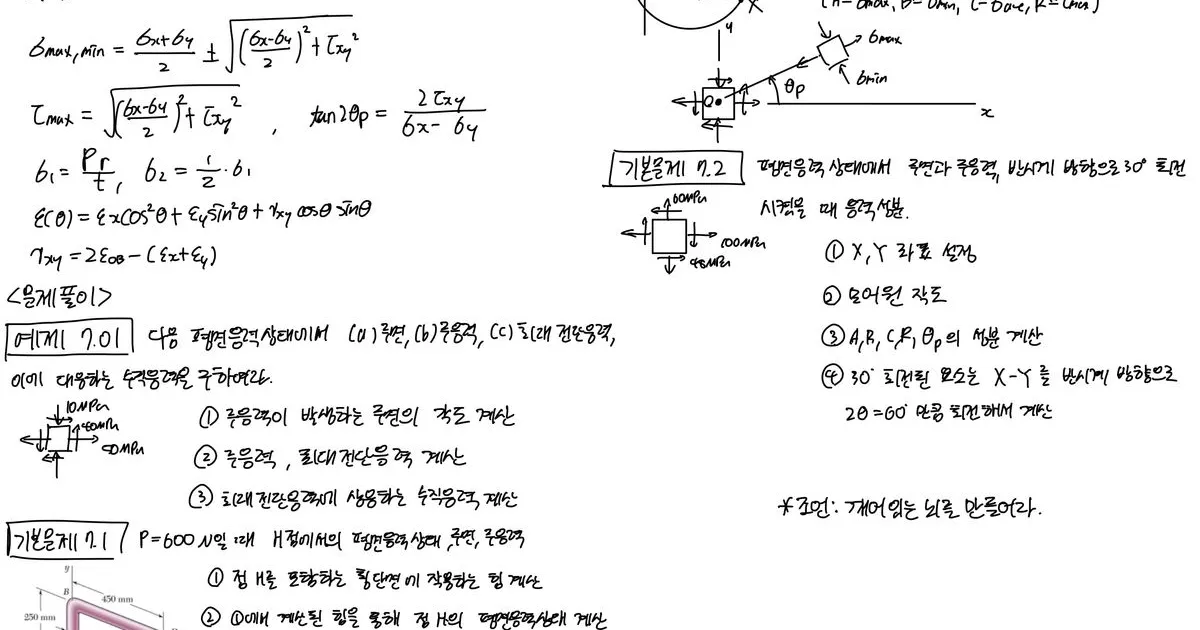 σmax,min = (σx+σy)/2 ± √(((σx-σy)/2)² + τxy²)
τmax = √(((σx-σy)/2)² + τxy²) , tan2θp = 2τxy/(σx-σy)
σ1 = Pr/t, σ2 = 1/2·σ1
ε(θ) = εxcos²θ + εy sin²θ + γxy cosθ sinθ
γxy = 2εOB - (εx+εy)
<문제풀이>
예제 7.01 다음 평면응력상태에서 (a) 주면, (b) 주응력, (c) 최대 전단응력,
이에 대응하는 수직응력을 구하여라.
10MPa
40MPa
50MPa
① 주응력이 발생하는 주면의 각도 계산
② 주응력, 최대전단응력 계산
③ 최대전단응력에 상응하는 수직응력 계산
기본문제 7.1 P=600N일 때 H점에서의 평면응력상태, 주면, 주응력
① 점 H를 포함하는 횡단면에 작용하는 힘 계산
② ①에서 계산된 힘을 통해 점 H의 평면응력상태 계산
y
B
450 mm
250 mm
X
y
σmax
σmin
θp
O
x
기본문제 7.2 평면응력상태에서 주면과 주응력, 반시계 방향으로 30° 회전
시켰을 때 응력성분.
60MPa
100MPa
48MPa
① X,Y 좌표 설정
② 모어원 작도
③ A,B,C,R,θp의 성분 계산
④ 30° 회전된 요소는 X-Y를 반시계 방향으로
2θ=60° 만큼 회전해서 계산
*조언: 깨어있는 뇌를 만들어라.